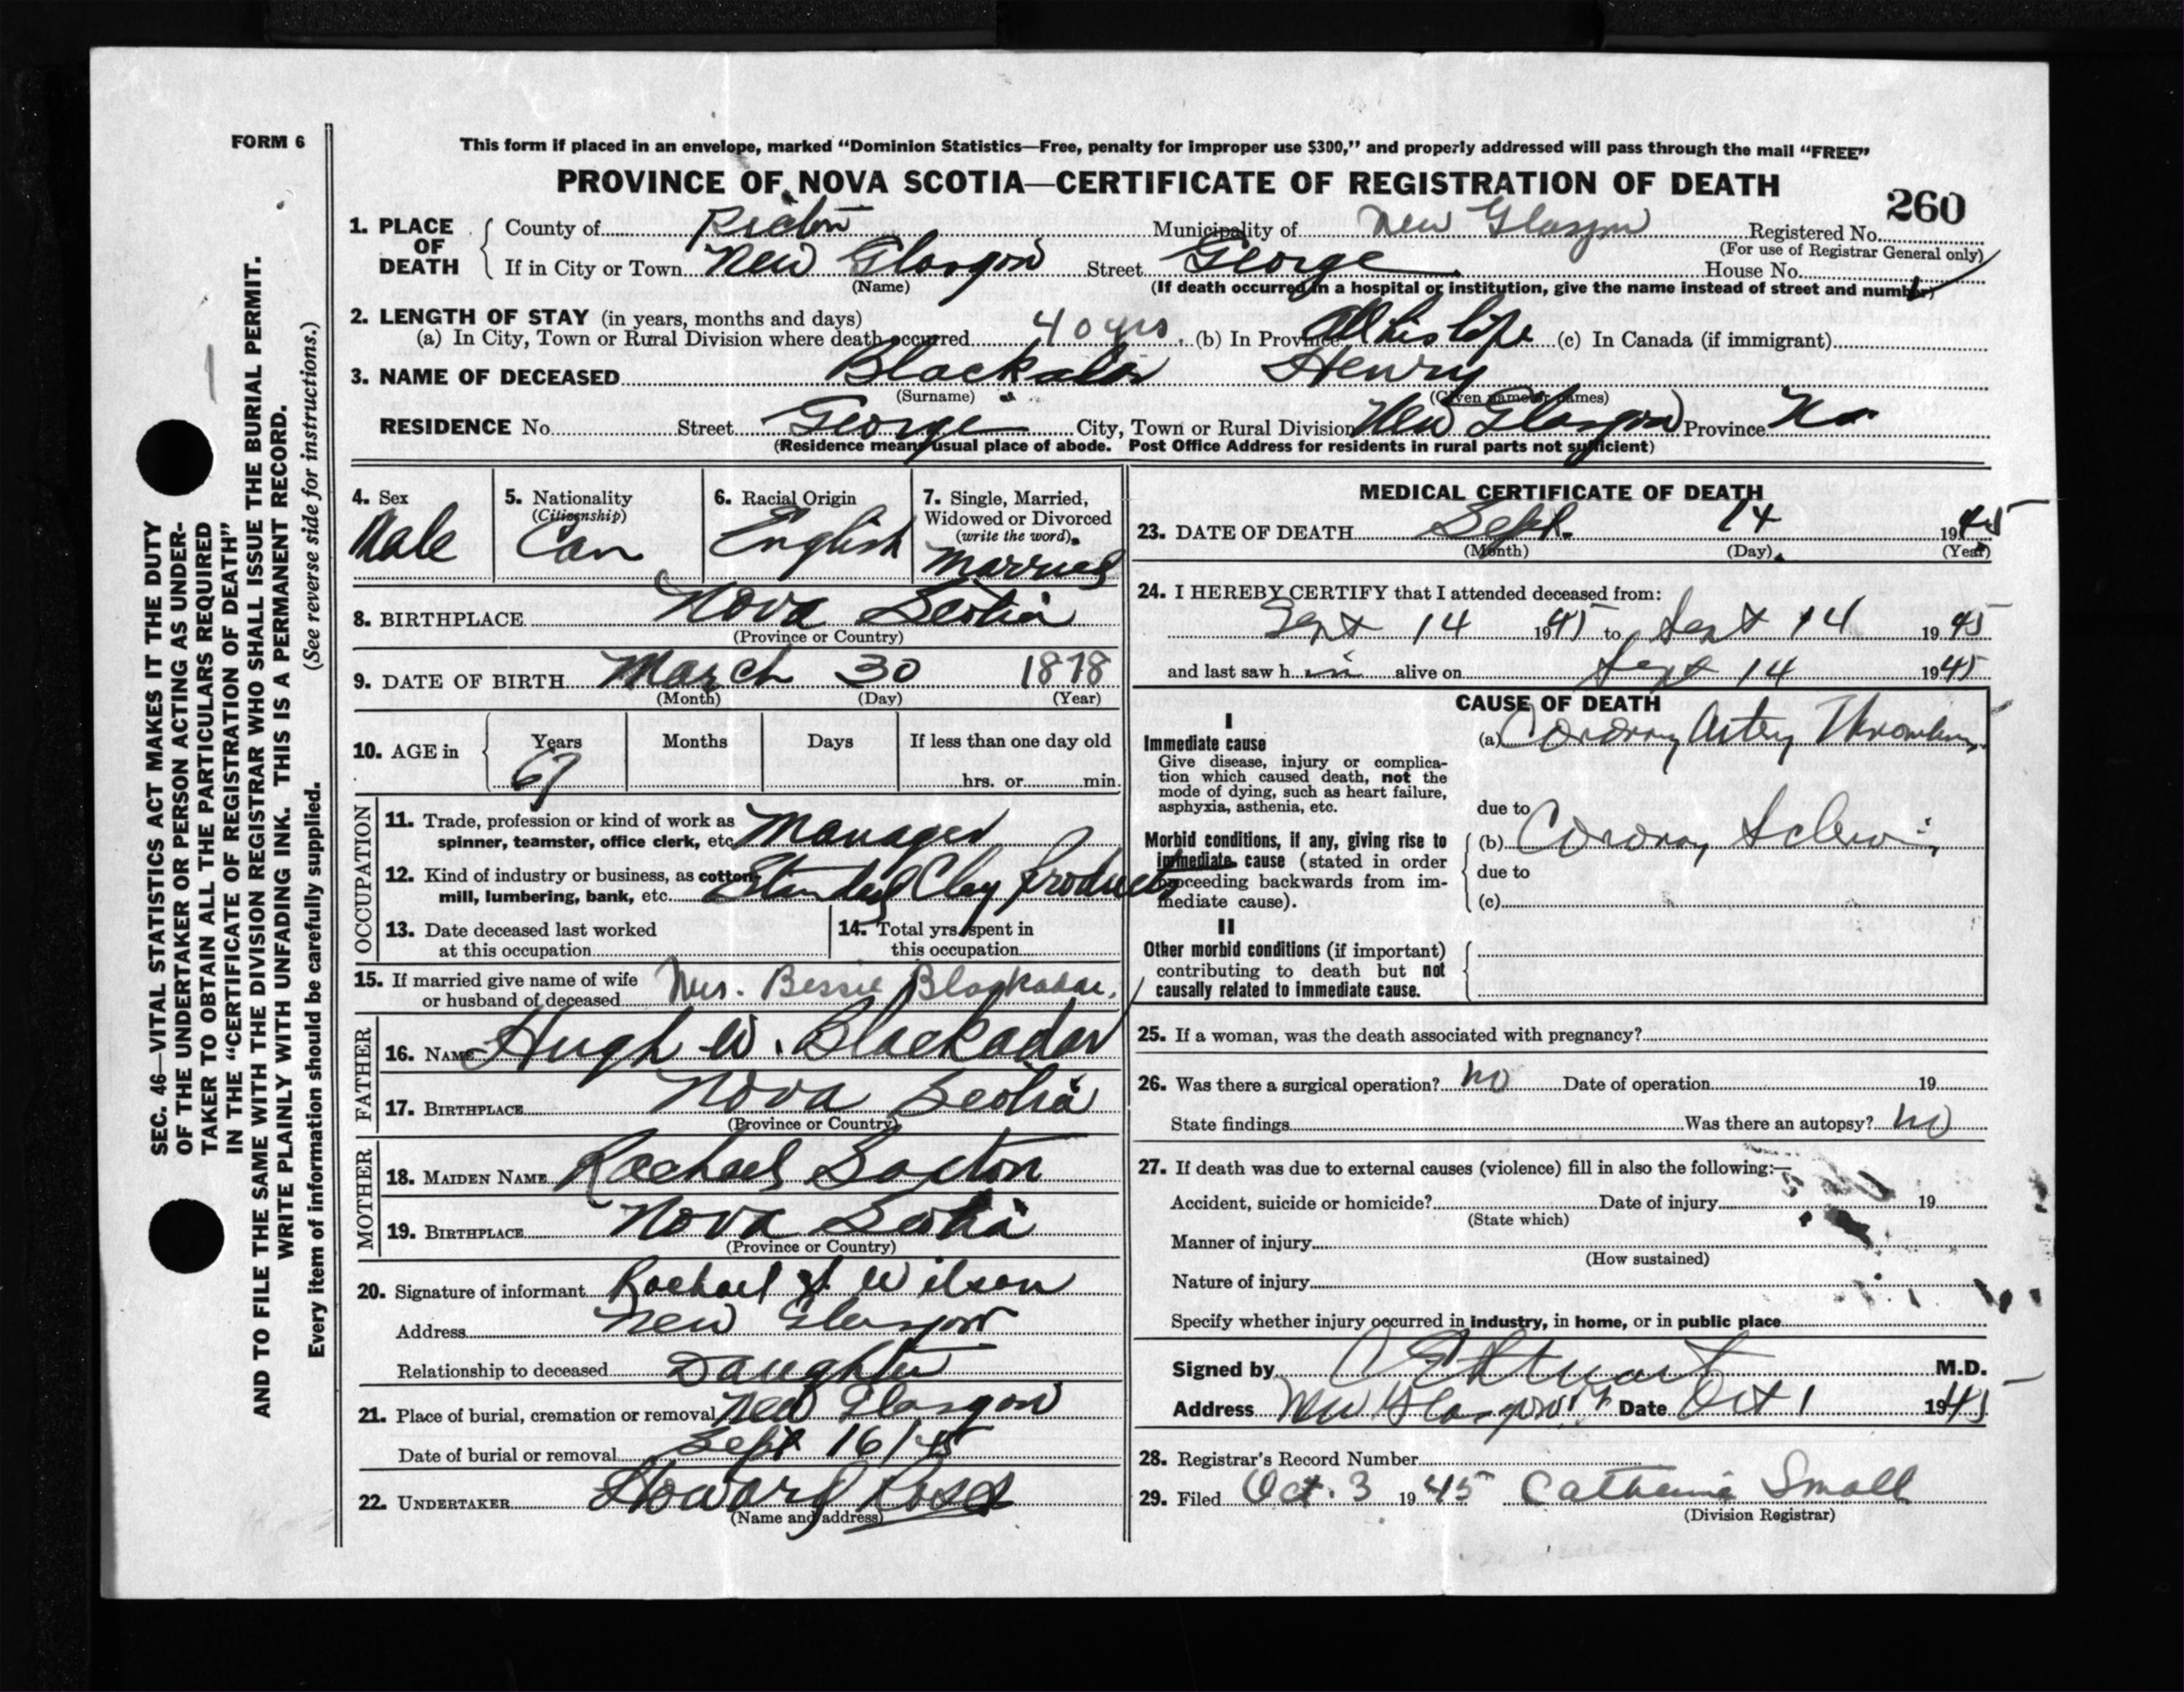 FORM 6
This form if placed in an envelope, marked “Dominion Statistics—Free, penalty for improper use $300,” and properly addressed will pass through the mail “FREE”
PROVINCE OF NOVA SCOTIA—CERTIFICATE OF REGISTRATION OF DEATH
260
1. PLACE OF DEATH
County of Pictou Municipality of New Glasgow Registered No.
(For use of Registrar General only)
If in City or Town New Glasgow Street George House No.
(Name) (If death occurred in a hospital or institution, give the name instead of street and number)
2. LENGTH OF STAY (in years, months and days)
(a) In City, Town or Rural Division where death occurred 40 yrs. (b) In Province All his life (c) In Canada (if immigrant)
3. NAME OF DECEASED Blackadar Henry
(Surname) (Given name or names)
RESIDENCE No. Street George City, Town or Rural Division New Glasgow Province NS
(Residence means usual place of abode. Post Office Address for residents in rural parts not sufficient)
4. Sex
Male
5. Nationality
(Citizenship)
Can
6. Racial Origin
English
7. Single, Married,
Widowed or Divorced
(write the word)
Married
8. BIRTHPLACE Nova Scotia
(Province or Country)
9. DATE OF BIRTH March 30 1878
(Month) (Day) (Year)
10. AGE in Years Months Days If less than one day old
67 hrs. or min.
OCCUPATION
11. Trade, profession or kind of work as
spinner, teamster, office clerk, etc. Manager
12. Kind of industry or business, as cotton
mill, lumbering, bank, etc. Standard Clay Products
13. Date deceased last worked
at this occupation
14. Total yrs. spent in
this occupation
15. If married give name of wife
or husband of deceased Mrs. Bessie Blackadar.
FATHER
16. NAME Hugh W. Blackadar
17. BIRTHPLACE Nova Scotia
(Province or Country)
MOTHER
18. MAIDEN NAME Rachael
19. BIRTHPLACE Nova Scotia
(Province or Country)
20. Signature of informant Rachael Wilson
Address New Glasgow
Relationship to deceased Daughter
21. Place of burial, cremation or removal New Glasgow
Date of burial or removal Sept 16/45
22. UNDERTAKER Howard Ross
(Name and address)
MEDICAL CERTIFICATE OF DEATH
23. DATE OF DEATH Sept. 14 1945
(Month) (Day) (Year)
24. I HEREBY CERTIFY that I attended deceased from:
Sept 14 1945 to Sept 14 1945
and last saw h im alive on Sept 14 1945
CAUSE OF DEATH
I
Immediate cause
Give disease, injury or complica-
tion which caused death, not the
mode of dying, such as heart failure,
asphyxia, asthenia, etc.
(a) Coronary Artery Thrombus
due to
Morbid conditions, if any, giving rise to
immediate cause (stated in order
proceeding backwards from im-
mediate cause).
(b) Coronary Sclerosis
due to
(c)
II
Other morbid conditions (if important)
contributing to death but not
causally related to immediate cause.
25. If a woman, was the death associated with pregnancy?
26. Was there a surgical operation? no Date of operation 19
State findings Was there an autopsy? no
27. If death was due to external causes (violence) fill in also the following:—
Accident, suicide or homicide? Date of injury 19
(State which)
Manner of injury
(How sustained)
Nature of injury
Specify whether injury occurred in industry, in home, or in public place
Signed by M.D.
Address New Glasgow Date Oct 1 1945
28. Registrar's Record Number
29. Filed Oct. 3 1945 Catherine Small
(Division Registrar)
SEC. 46—VITAL STATISTICS ACT MAKES IT THE DUTY
OF THE UNDERTAKER OR PERSON ACTING AS UNDER-
TAKER TO OBTAIN ALL THE PARTICULARS REQUIRED
IN THE “CERTIFICATE OF REGISTRATION OF DEATH”
AND TO FILE THE SAME WITH THE DIVISION REGISTRAR WHO SHALL ISSUE THE BURIAL PERMIT.
WRITE PLAINLY WITH UNFADING INK. THIS IS A PERMANENT RECORD.
Every item of information should be carefully supplied. (See reverse side for instructions.)